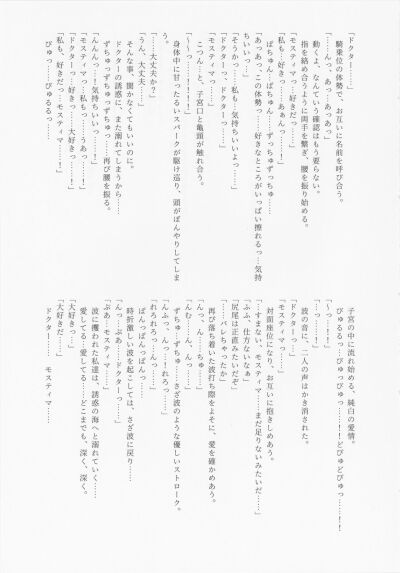 「ドクター…」
騎乗位の体勢で、お互いに名前を呼び合う。
「……んっ、あっ…あっあっ」
動くよ、なんていう確認はもう要らない。
指を絡め合うように両手を繋ぎ、腰を振り始める。
「モスティマっ…好きだっ…」
「私も…好き…あぁんっ…！」
ぱちゅんっぱちゅんっ…ずっちゅずっちゅ……
「あっあっ、この体勢っ……好きなところがいっぱい擦れるっ…気持
ちいいっ…」
「そうかっ…私も…気持ちいいよっ……」
「ドクターっ、ドクターっ……」
「モスティマっ……」
こつんっ…と、子宮口と亀頭が触れ合う。
「～～っ…！！！」
身体中に甘ったるいスパークが駆け巡り、頭がぼんやりしてしま
う。
「…大丈夫か？」
「うん、大丈夫……」
そんな事、聞かなくてもいいのに。
ドクターの誘惑に、また溺れてしまうから…
ずちゅっずちゅっずちゅっ……再び腰を振る。
「んんんっ……気持ちいいっ……！」
「モスティマっ…私もっ……うあっ…！」
「ドクターっ好きっ……大好きっ……！」
「私も、好きだっ…モスティマ……！」
びゅっ……びゅるるっ
子宮の中に流れ始める、純白の愛情。
びゅるるっ…びゅっびゅっ……！！どびゅどびゅっ……！！
「～～っ…！！」
「……っ…！」
波の音に、二人の声はかき消された。
「ドクターっ……」
「モスティマっ……」
対面座位になり、お互いに抱きしめあう。
「…すまない、モスティマ……まだ足りないみたいだ……」
「ふふ、仕方ないなぁ」
「尻尾は正直みたいだぞ」
「……バレちゃったか」
再び落ち着いた波打ち際をよそに、愛を確かめあう。
「んっ、んっ……ちゅっ……」
「んむ…、んっ……」
ずちゅっ…ずちゅっ……さざ波のような優しいストローク。
「んふっ……んっ…！れろっ……」
「れろれろっ……んっ……」
ぱんっぱんっぱんっ……
時折激しい波を起こしては、さざ波に戻り……
「んっ……ぷあ…ドクターっ……」
「ぷあ…モスティマっ……」
「大好きっ……」
愛してる…愛してる……どこまでも、深く、深く。
波に攫われた私達は、誘惑の海へと溺れていく……
「大好きだ…」
ドクター……　モスティマ……